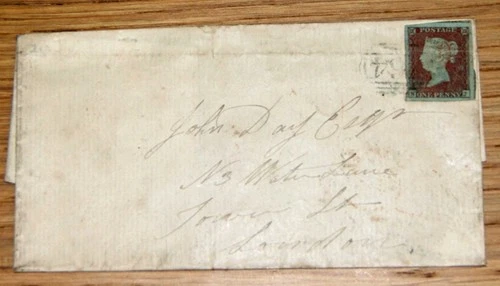 POSTAGE
ONE PENNY
John Day Esqr
N3 Water Lane
Tower St
London